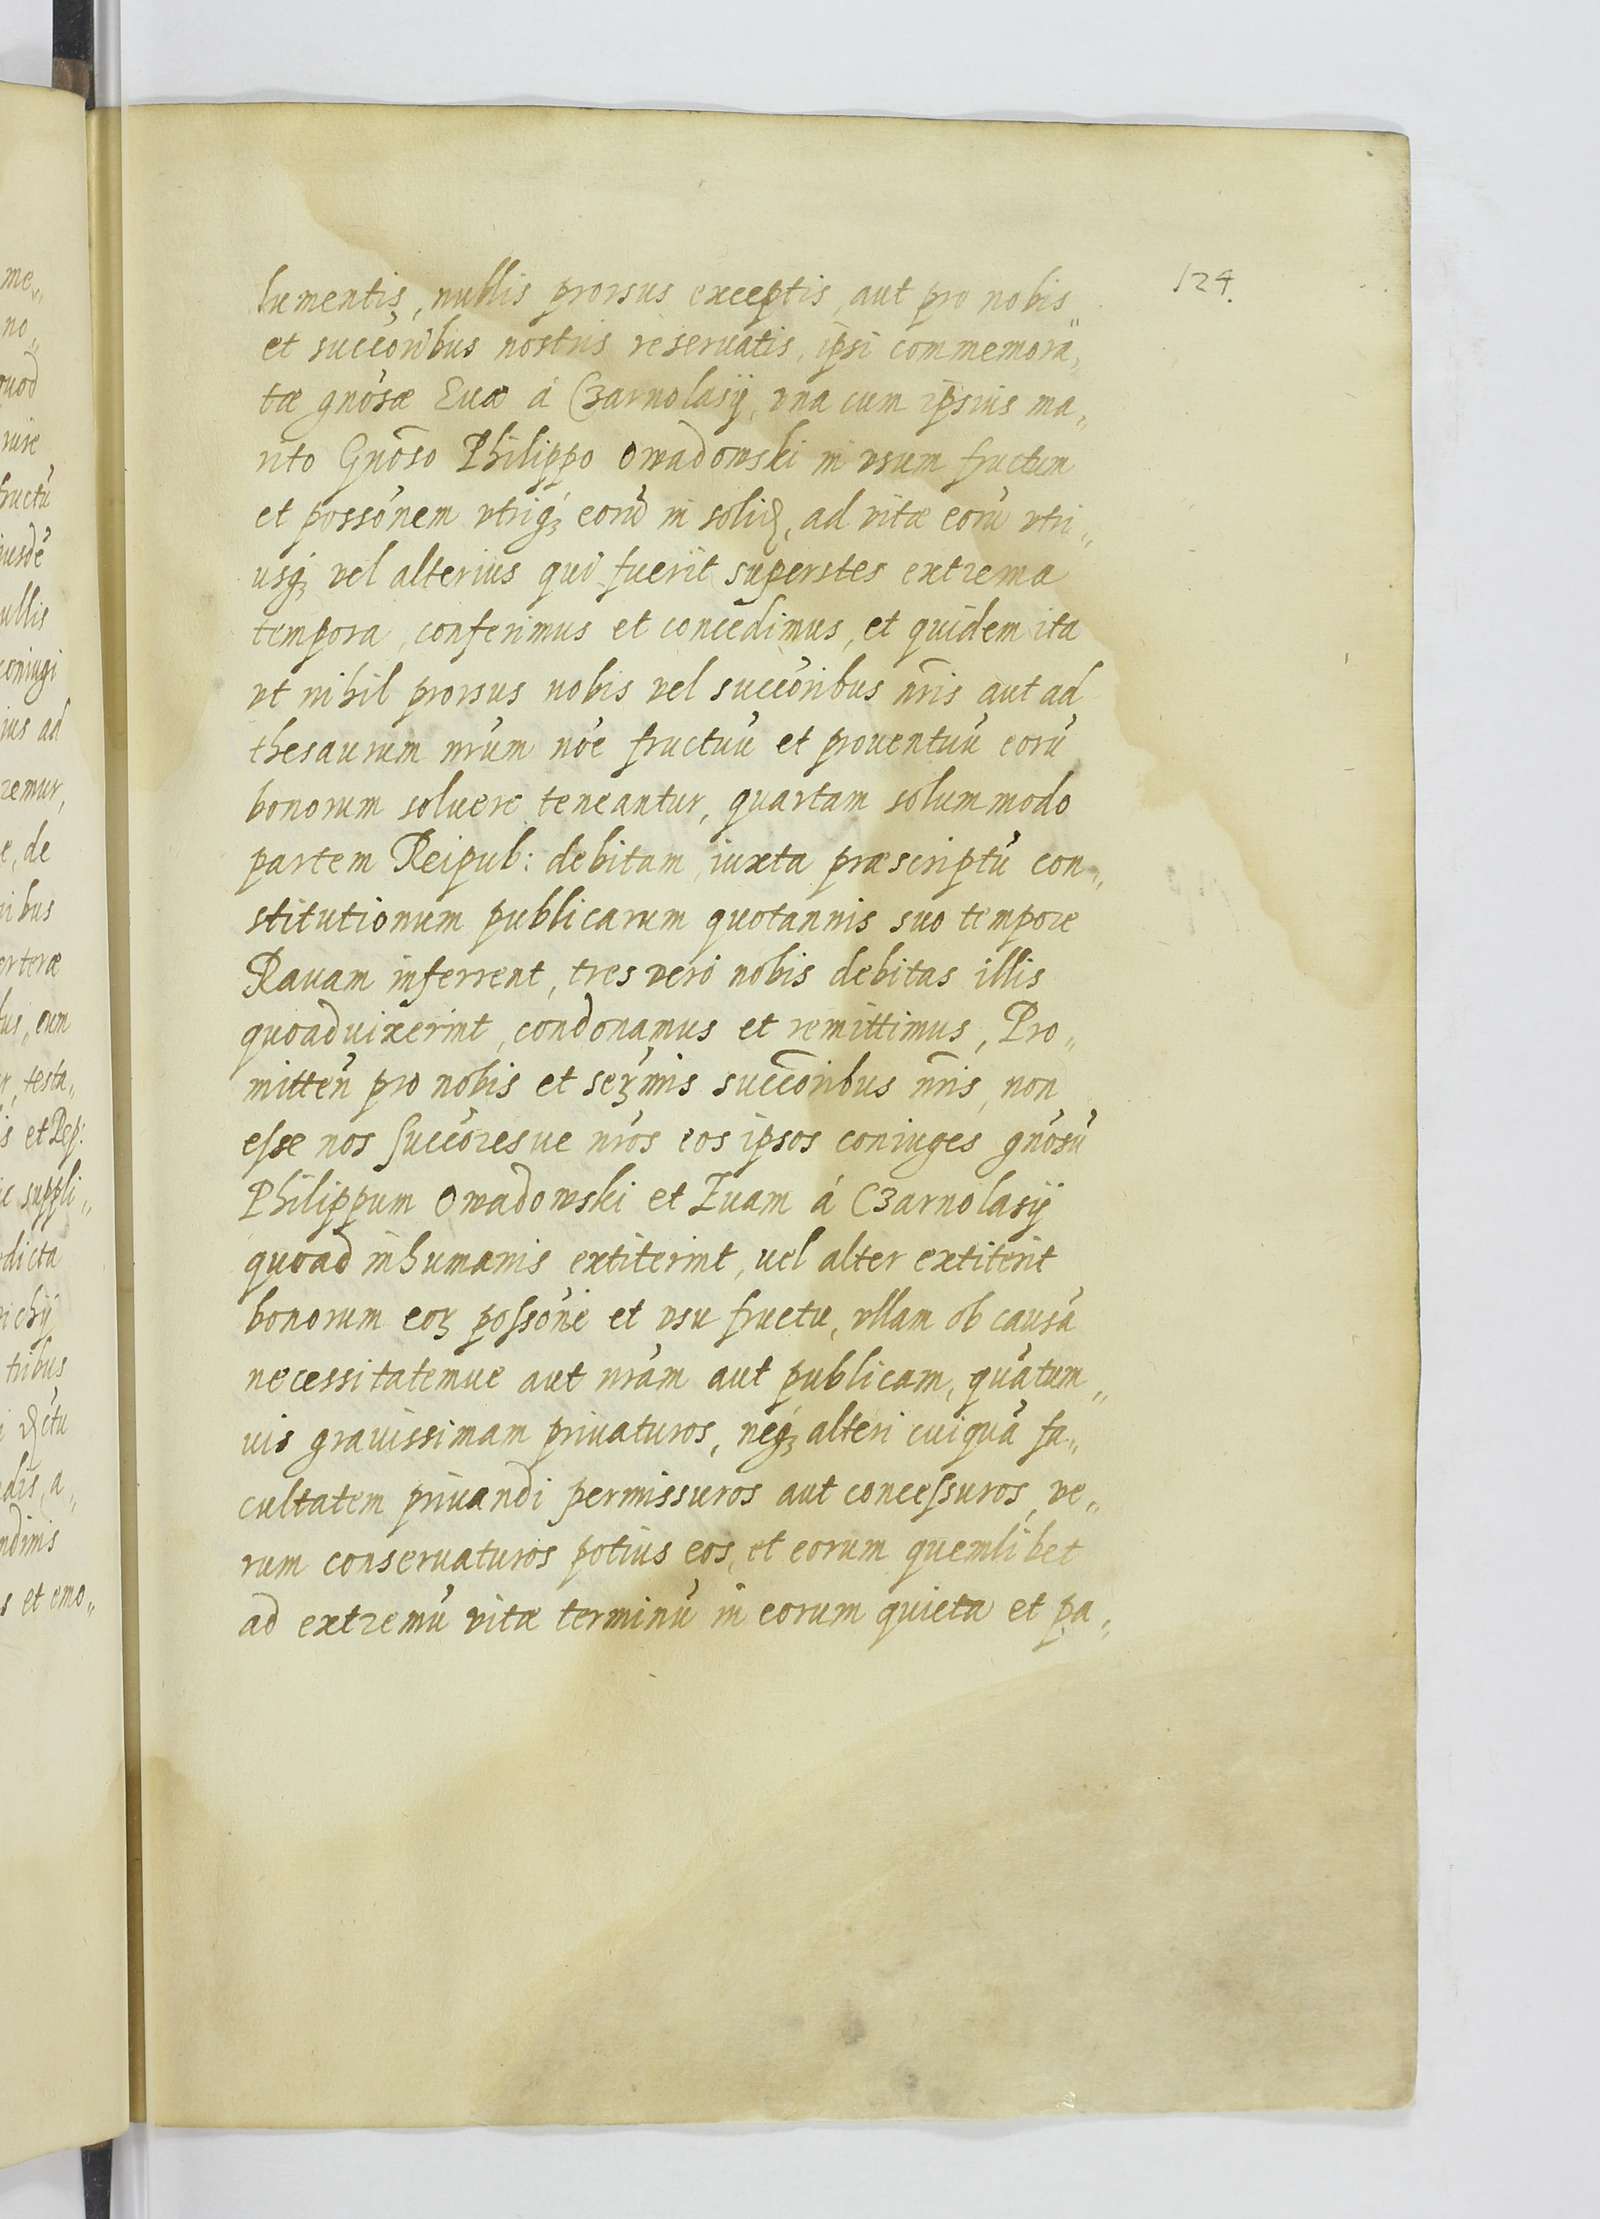 124.
lumentis, nullis prorsus exceptis, aut pro nobis
et succoribus nostris reseruatis, ipsi commemora„
tæ gnosæ Euæ á Czarnolasÿ, vna cum ipsius ma„
rito Gnoso Philippo Owadowski in vsum fructum
et possonem vtriqꝫ eorũ in solid, ad vitæ eorũ vtri„
usqꝫ vel alterius qui fuerit superstes extrema
tempora, conferimus et concedimus, et quidem ita
vt nihil prorsus nobis vel succoribus nris aut ad
thesaurum nrum noe fructuũ et prouentuũ eorũ
bonorum soluere teneantur, quartam solummodo
partem Reipub: debitam, iuxta præscriptũ con„
stitutionum publicarum quotannis suo tempore
Rauam inferrent, tres veró nobis debitas illis
quoaduixerint, condonamus et remittimus, Pro„
mitteñ pro nobis et serꝫmis succoribus nris, non
eſse nos ſuccoresue nros eos ipsos coniuges gnosũ
Philippum Owadowski et Euam á Czarnolasÿ
quoad inhumanis extiterint, vel alter extiterit
bonorum eoꝫ poſsone et vsu fructu, vllam ob causã
necessitatemue aut nram aut publicam, quãtum„
uis grauissimam priuaturos, neqꝫ alteri cuiquã fa„
cultatem priuandi permissuros aut conceſsuros, ve„
rum conseruaturos potius eos, et eorum quemlibet
ad extremũ vitæ terminũ in eorum quieta et pa„